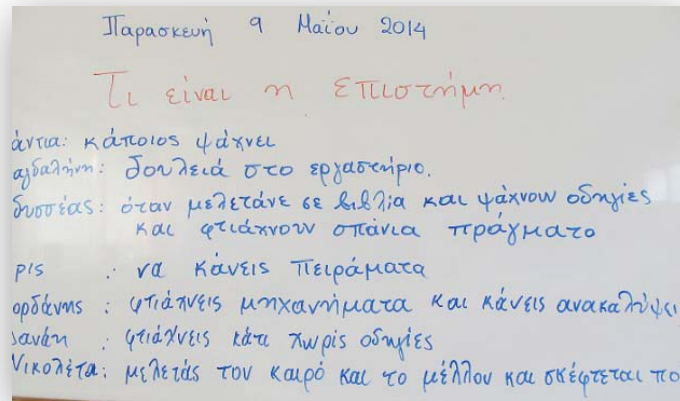 Παρασκευή 9 Μαΐου 2014
Τι είναι η επιστήμη
άντια: κάποιος ψάχνει
αγδαληνη: δουλειά στο εργαστήριο.
δυσσέας: όταν μελετάνε σε βιβλία και ψάχνουν οδηγίες
και φτιάχνουν σπάνια πράγματα
ρις : να κάνεις πειράματα
ορδάνης : φτιάχνεις μηχανήματα και κάνεις ανακαλύψει
φτιάχνεις κάτι χωρίς οδηγίες
Νικολέτα: μελετάς τον καιρό και το μέλλον και σκέφτεται πο